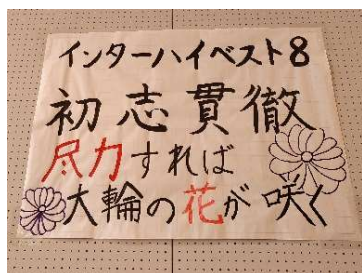 インターハイベスト8
初志貫徹
尽力すれば
大輪の花が咲く